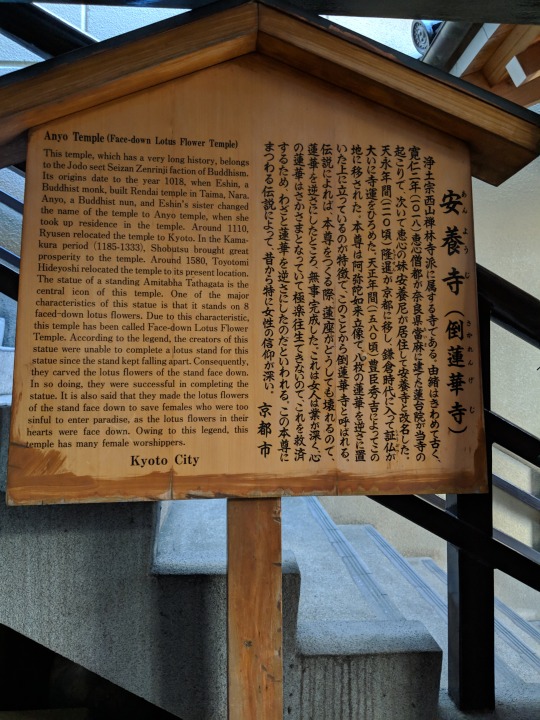 Anyo Temple (Face-down Lotus Flower Temple)
This temple, which has a very long history, belongs
to the Jodo sect Seizan Zenrinji faction of Buddhism.
Its origins date to the year 1018, when Eshin, a
Buddhist monk, built Rendai temple in Taima, Nara.
Anyo, a Buddhist nun, and Eshin's sister changed
the name of the temple to Anyo temple, when she
took up residence in the temple. Around 1110,
Ryusen relocated the temple to Kyoto. In the Kama-
kura period (1185-1333), Shobutsu brought great
prosperity to the temple. Around 1580, Toyotomi
Hideyoshi relocated the temple to its present location.
The statue of a standing Amitabha Tathagata is the
central icon of this temple. One of the major
characteristics of this statue is that it stands on 8
faced-down lotus flowers. Due to this characteristic,
this temple has been called Face-down Lotus Flower
Temple. According to the legend, the creators of this
statue were unable to complete a lotus stand for this
statue since the stand kept falling apart. Consequently,
they carved the lotus flowers of the stand face down.
In so doing, they were successful in completing the
statue. It is also said that they made the lotus flowers
of the stand face down to save females who were too
sinful to enter paradise, as the lotus flowers in their
hearts were face down. Owing to this legend, this
temple has many female worshippers.
Kyoto City
安養寺(倒蓮華寺)
あんようじ
さかれんげじ
浄土宗西山禅林寺派に属する寺である。由緒はきわめて古く、
寛仁二年(一〇一八)恵心僧都が奈良県當麻に建てた蓮台院が当寺の
起こりで、次いで恵心の妹安養尼が居住して安養寺と改名した。
天永年間(一一一〇頃)隆暹が京都に移し、鎌倉時代に入って証仏が
大いに寺運をひろめた。天正年間(一五八〇頃)豊臣秀吉によってこの
地に移された。本尊は阿弥陀如来立像で、八枚の蓮華を逆さに置
いた上に立っているのが特徴で、このことから「倒蓮華寺」と呼ばれる。
伝説によれば、本尊をつくる際、蓮座がどうしても壊れるので、
蓮華を逆さにしたところ、無事、完成した。これは女人は業が深く、心
の蓮華はさかさまとなっていて極楽往生できないので、これを救済
するため、わざと蓮華を逆さにしたのだといわれる。この本尊に
まつわる伝説によって、昔から特に女性の信仰が深い。
京都市